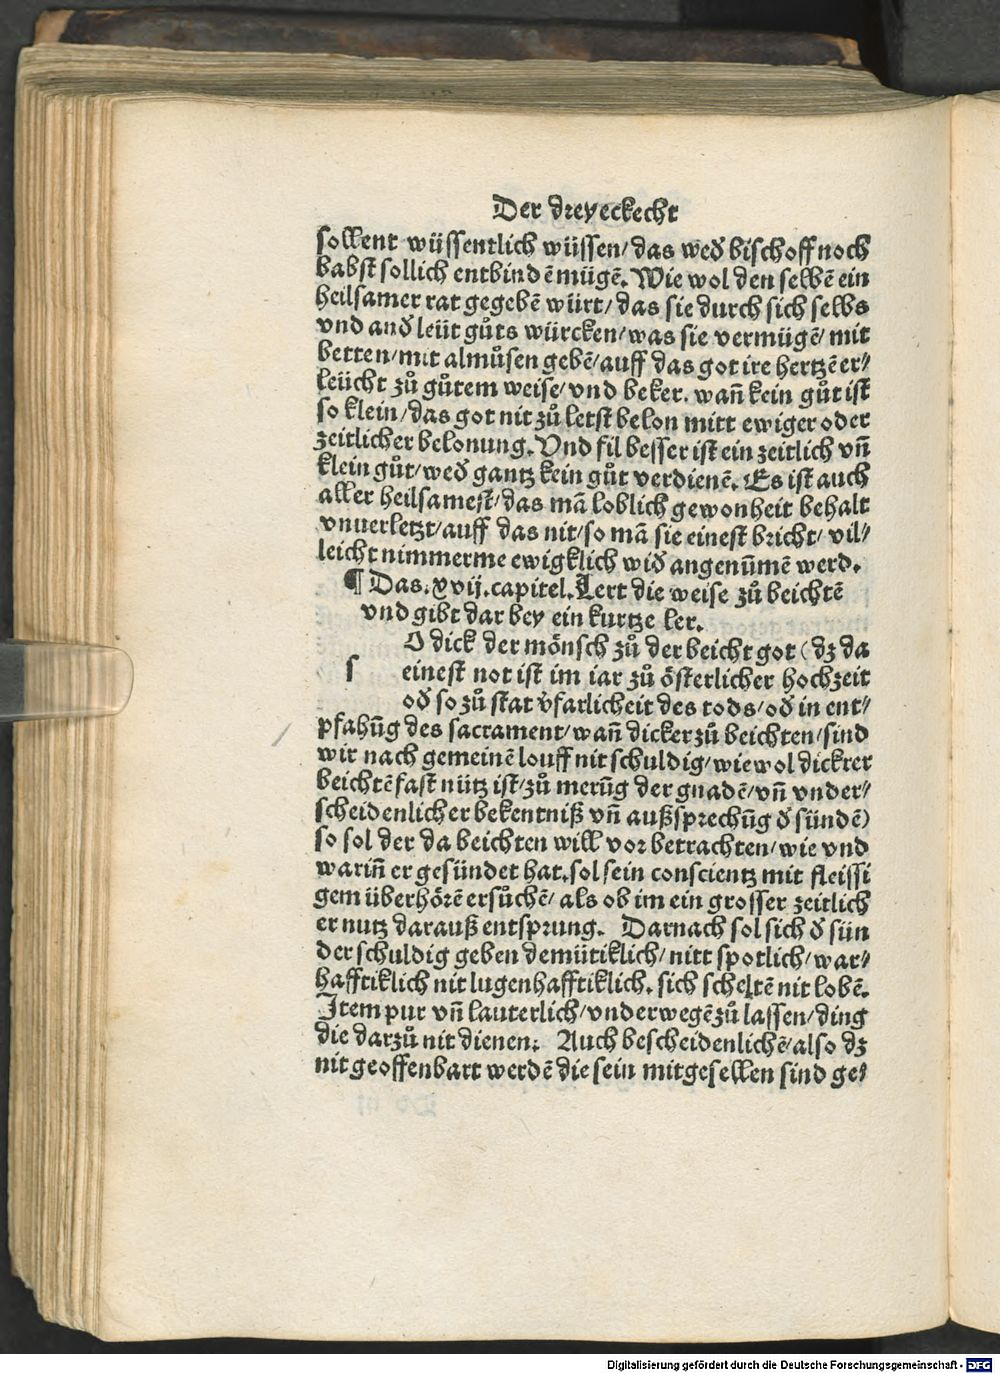 Der dreyeckecht
sollent wüssentlich wüssen/ das wed̄ bischoff noch
babst sollich entbindē mügē. Wie wol den selbē ein
heilsamer rat gegebē würt/ das sie durch sich selbs
vnd and̄ leüt gůts würcken/ was sie vermügē/ mit
betten/ mit almůsen gebē/ auff das got ire hertzē er⸗
leücht zů gůtem weise/ vnd beker. wañ kein gůt ist
so klein/ das got nit zů letst belon mitt ewiger oder
zeitlicher belonung. Vnd fil besser ist ein zeitlich vñ
klein gůt/ wed̄ gantz kein gůt verdienē. Es ist auch
aller heilsamest/ das mā loblich gewonheit behalt
vnuerletzt/ auff das nit/ so mā sie einest bricht/ vil⸗
leicht nimmerme ewigklich wid̄ angenūmē werd.
¶ Das .xvij. capitel. Lert die weise zů beichtē
vnd gibt dar bey ein kurtze ler.
s O dick der mönsch zů der beicht got (dz da
einest not ist im iar zů österlicher hochzeit
od̄ so zů stat v̄farlicheit des tods/ od̄ in ent⸗
pfahūg des sacrament/ wañ dicker zů beichten/ sind
wir nach gemeinē louff nit schuldig/ wie wol dickrer
beichtē fast nütz ist/ zů merūg der gnadē/ vñ vnder⸗
scheidenlicher bekentniß vñ außsprechūg d̄ sündē)
so sol der da beichten will vor betrachten/ wie vnd
wariñ er gesündet hat. sol sein conscientz mit fleissi
gem überhörē ersůchē/ als ob im ein grosser zeitlich
er nutz darauß entsprung. Darnach sol sich d̄ sün
der schuldig geben demütiklich/ nitt spotlich/ war⸗
hafftiklich nit lugenhafftiklich. sich scheltē nit lobē.
Item pur vñ lauterlich/ vnderwegē zů lassen/ ding
die darzů nit dienen. Auch bescheidenlichē/ also dz
nit geoffenbart werdē die sein mitgesellen sind ge⸗
Digitalisierung gefördert durch die Deutsche Forschungsgemeinschaft - DFG